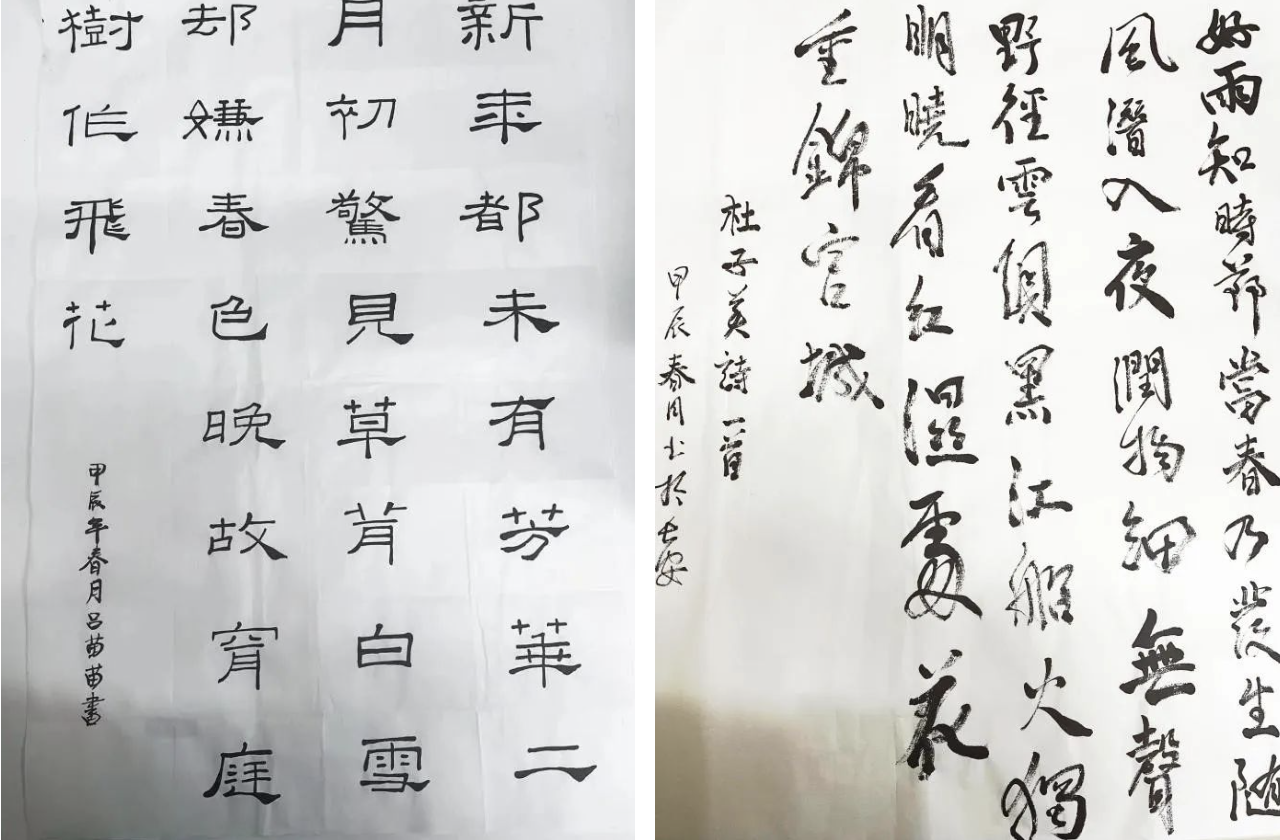 新年都未有芳華二
月初驚見草芽白雪
却嫌春色晚故穿庭
樹作飛花
甲辰年春月呂苗苗書
好雨知時節當春乃發生隨
風潛入夜潤物細無聲
野徑雲俱黑江船火獨
明曉看紅濕處花
重錦官城
杜子美詩一首
甲辰春月书於長安